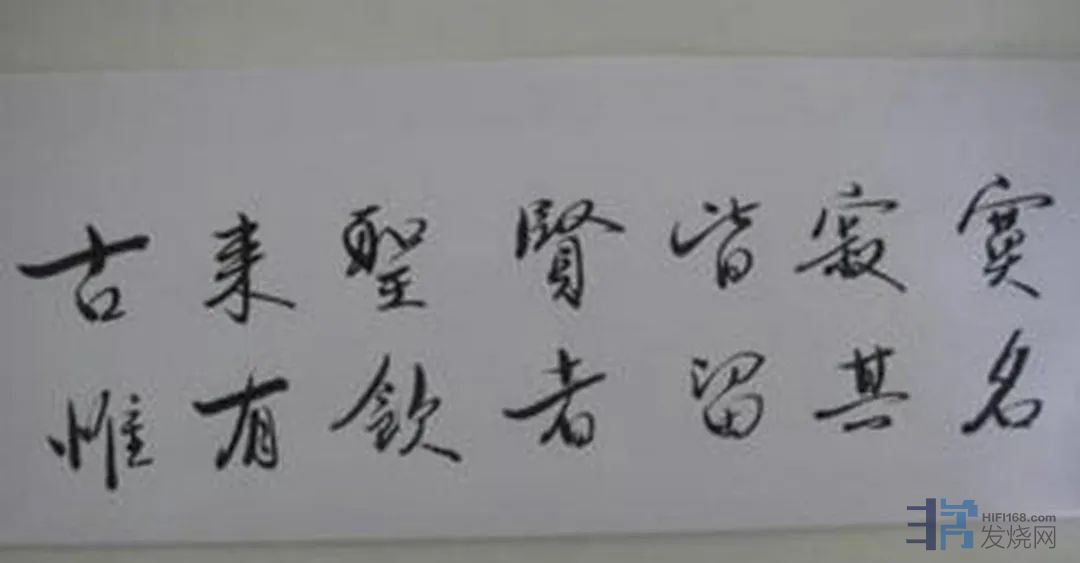 古来聖賢皆寂寞
惟有飲者留其名
HIFI168.com
发烧网